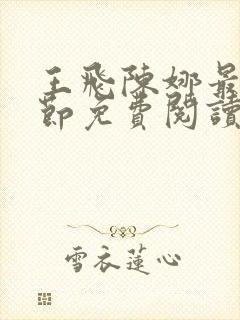 王飛陳娜最
節免費閱讀
雪衣蓮心